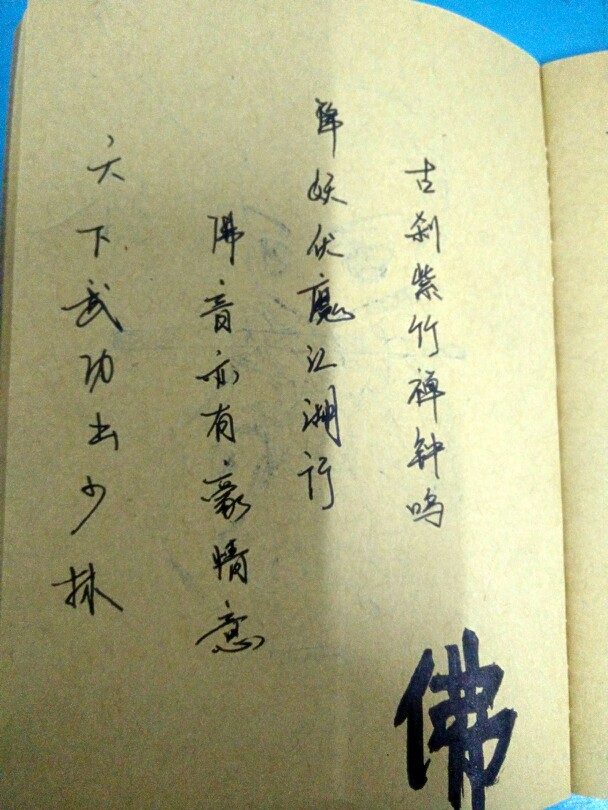 古刹紫竹禅钟鸣
降妖伏魔江湖行
佛音亦有豪情意
天下武功出少林
佛